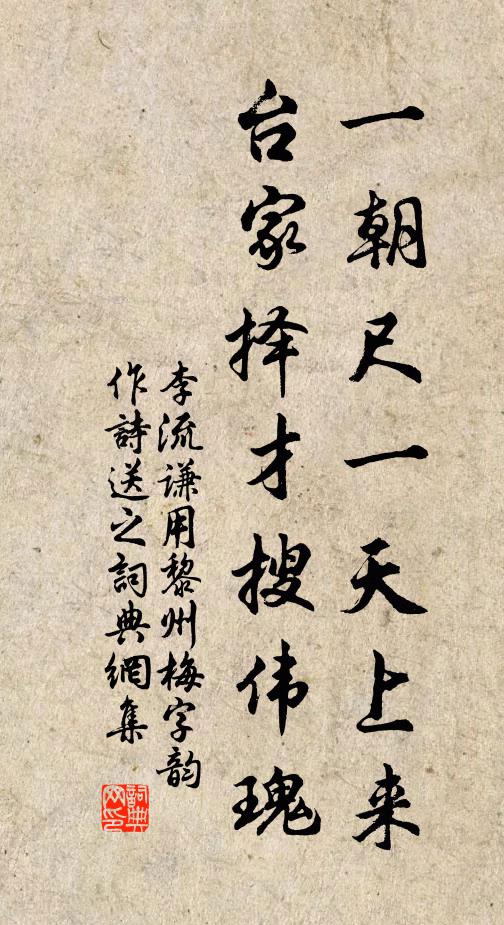 一朝尺一天上来
台家择才搜伟瑰
李流谦用黎州梅字韵
作詩送之詞典網集
詞典
网印